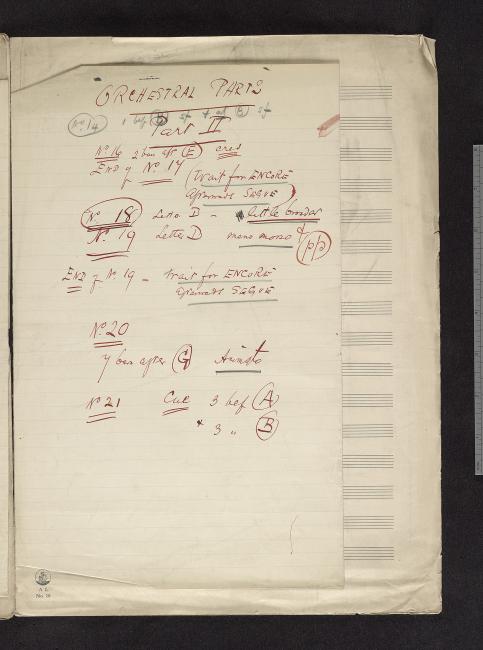 ORCHESTRAL PARTS
No. 14 1 bef D sf + at E sf
Part II
No. 16 2 bars aft E cres
END of No. 17 (Wait for ENCORE
afterwards SEGUE)
No. 18 Letter D - little broader
No. 19 Letter D meno mosso & pp
END of No. 19 - Wait for ENCORE
afterwards SEGUE
No. 20
7 bars after G Animato
No. 21 Cue 3 bef A
+ 3 " B
A L
No. 16